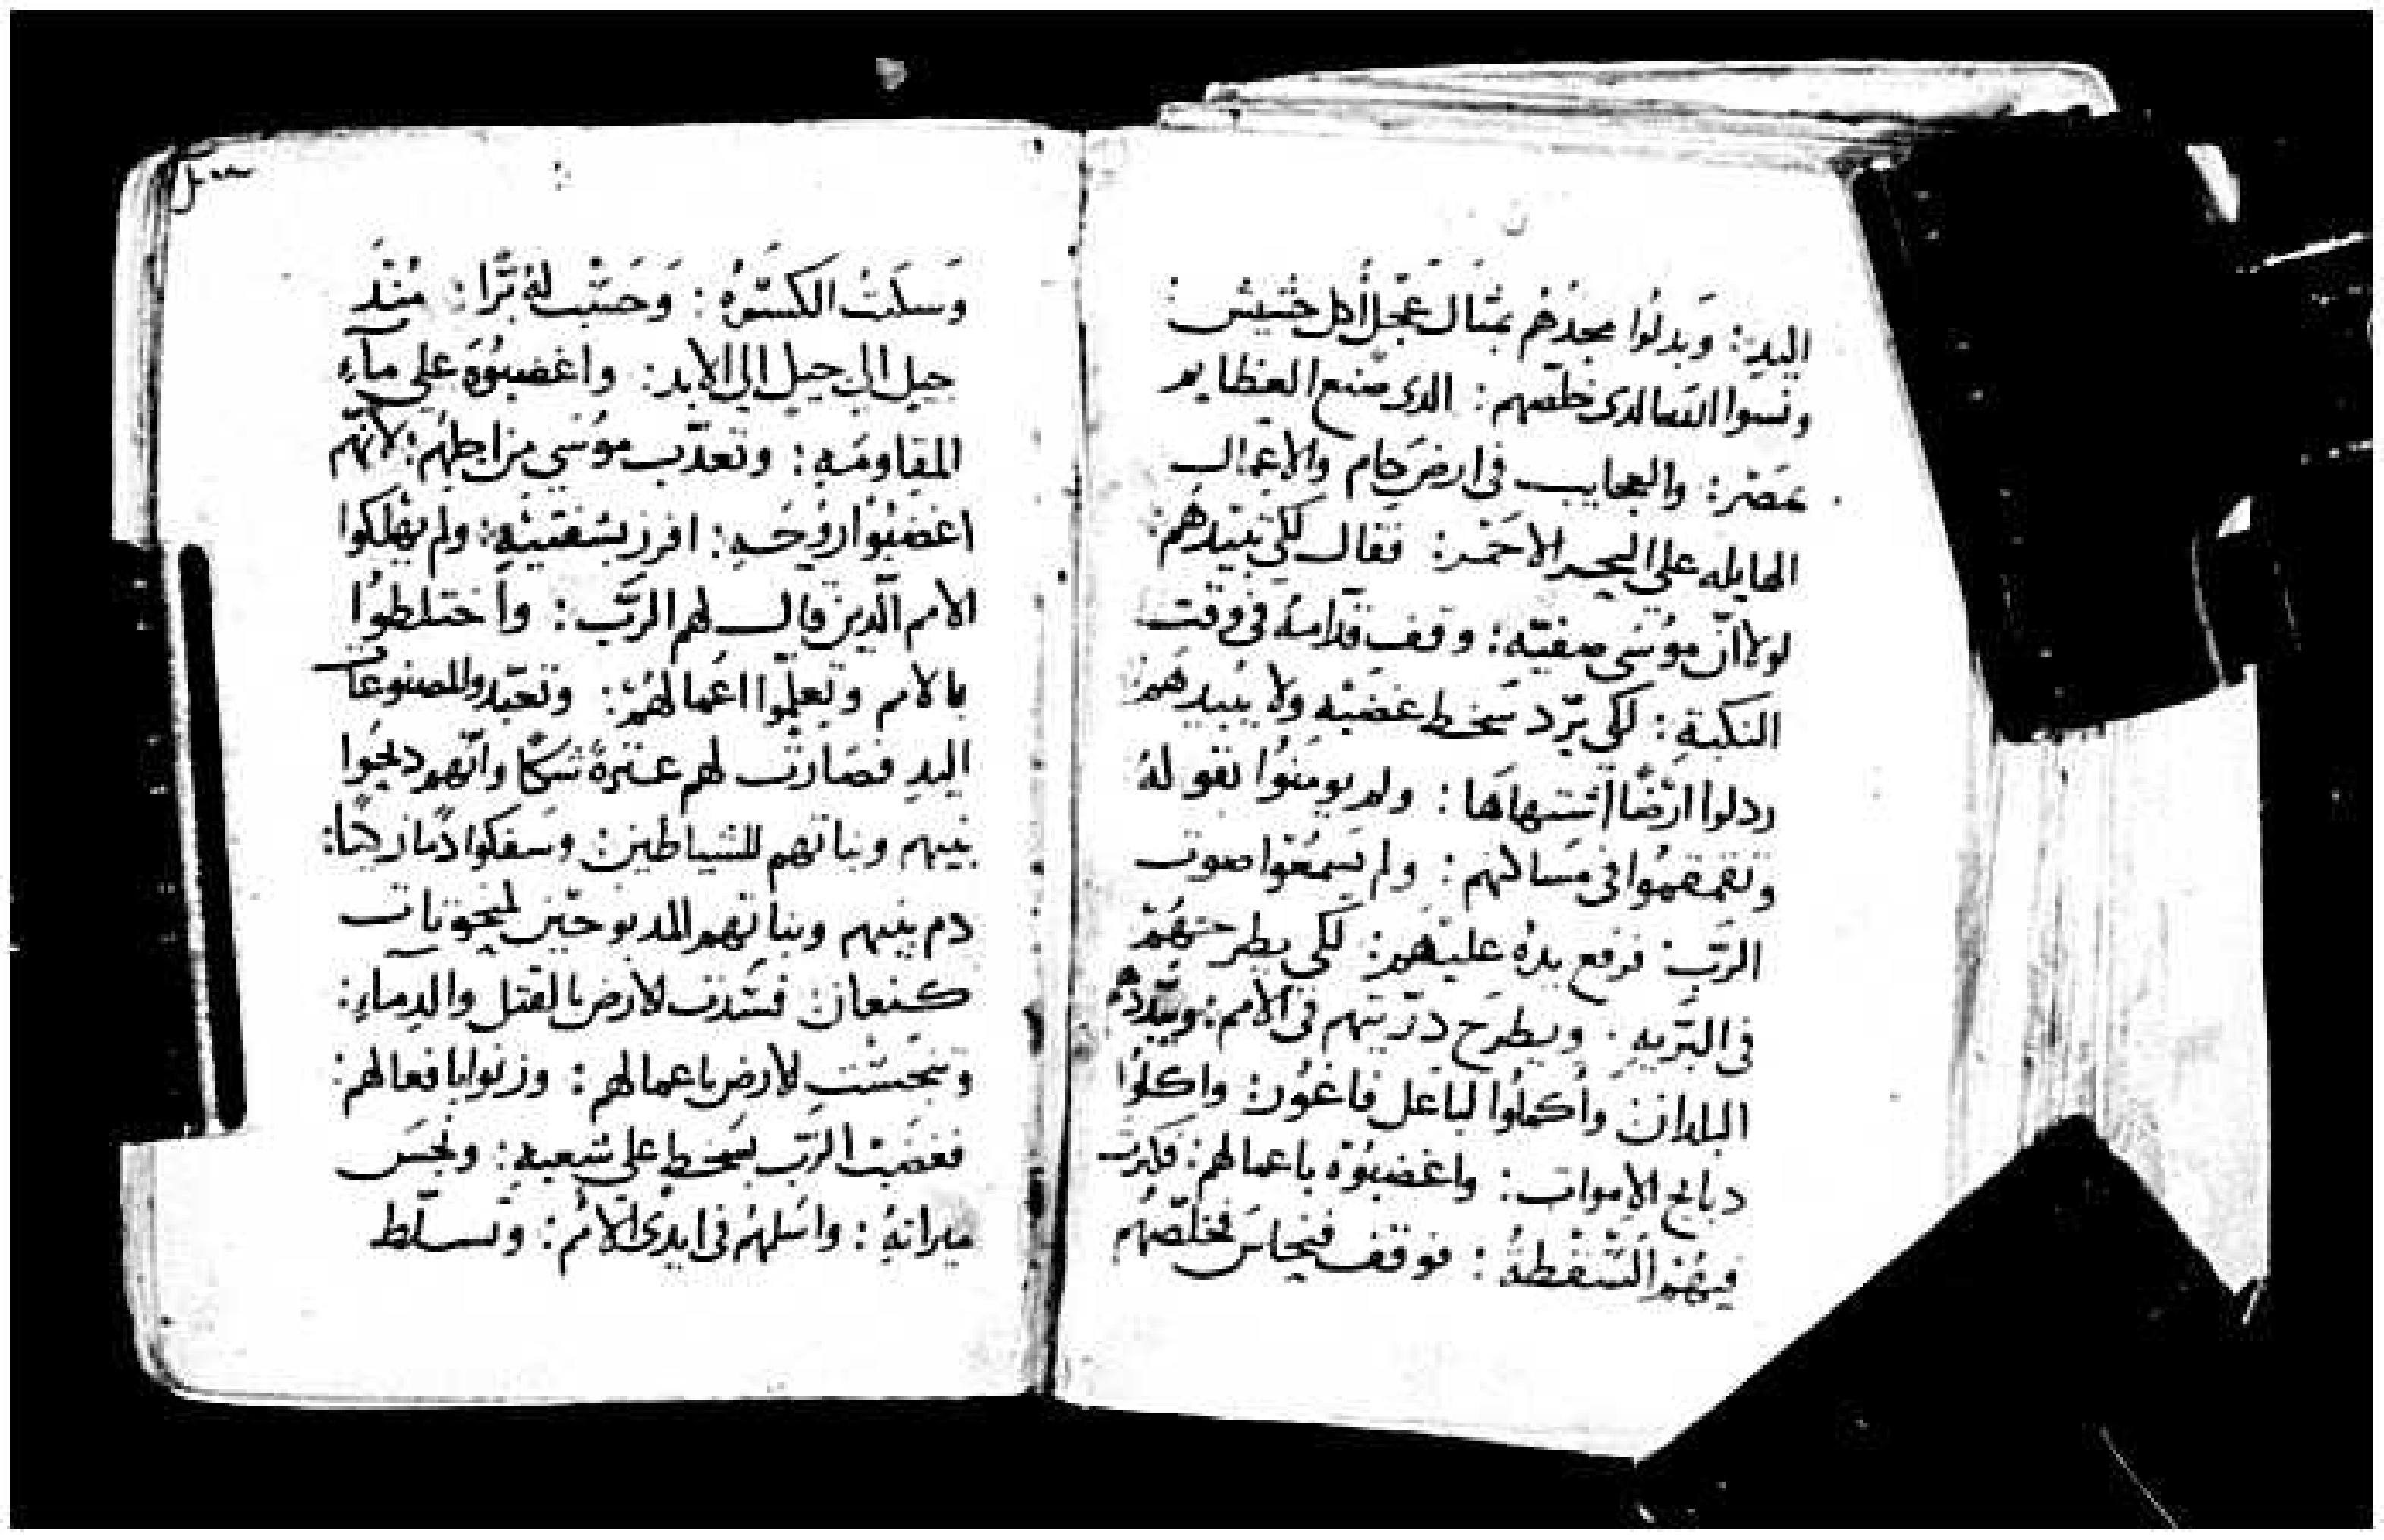 اليدِ: وَبدلُوا مجدَهُم بمثال عَجل أكل حَشيش:
ونسَوا الله الدى خلّصهم: الدى صنع العظايم
بمَصْر: والعجايب فى ارض حام والاعمال
الهايله على البحر الاحمَر: فقال لكى يبيدهم:
لولا انّ موُسَى صفيّه: وقف قدامهُ فى وقت
النكبةِ: لكي يرّد سَخط غضبَه ولا يبيدهم:
ردلوا ارضًا اشتهاهَا: ولم يومنوُا بقولهُ
وتقمقموُا فى مسَاكنهم: ولم يَسمعُوا صوت
الربّ: فرفع يدهُ عليهم: لكي يطرحهُم
فى البَرّيهِ: ويطرَح درّيتهم فى الأمم: ويبَدّدهم
البلدان وأكملُوا لباعل فاغُور: واكلُوا
دبايح الاموات: واغضبُوهَ باعمالهم: فكترت
فيهُم السَّقطةُ: فوقف فينحاسَ فخلّصهُم
وَسكَتْ الكسَرهُ: وَحَسَبْ لهُ بّرًا: مُنْدَ
جيل الى جيلٍ الى الابد: واغضبُوهَ على مآءِ
المقاومَهِ: وتعدّب موُسَي من اجلهُم: لأنّهم
اغضبُوا روُحَهِ: افرز بشفتيْهِ: ولم يهْلكوا
الأمم الّدين قال لهم الرَّب: وأختلطوُا
بالامم وتعلّموا اعْمالهُمْ: وتعبّدوا للمصنوعات
اليد فصَارت لهم عترةً شكًا وانّهم دبحُوا
بنيهم وبناتهم للشياطين: وسَفكوا دمًا زكيًا:
دم بنيهم وبناتهم المدبوحَين لمنحوتات
كنعان فسَدت الارض بالقتل والدماءِ:
وتنجسَّت الارض باعمالهم: وزنوا بافعالهم:
فغضبْ الرَب بسَخط على شعبهِ: ونجسَ
ميراتهُ: واسَلمهُم فى ايدى الأُمم: وتسلّط